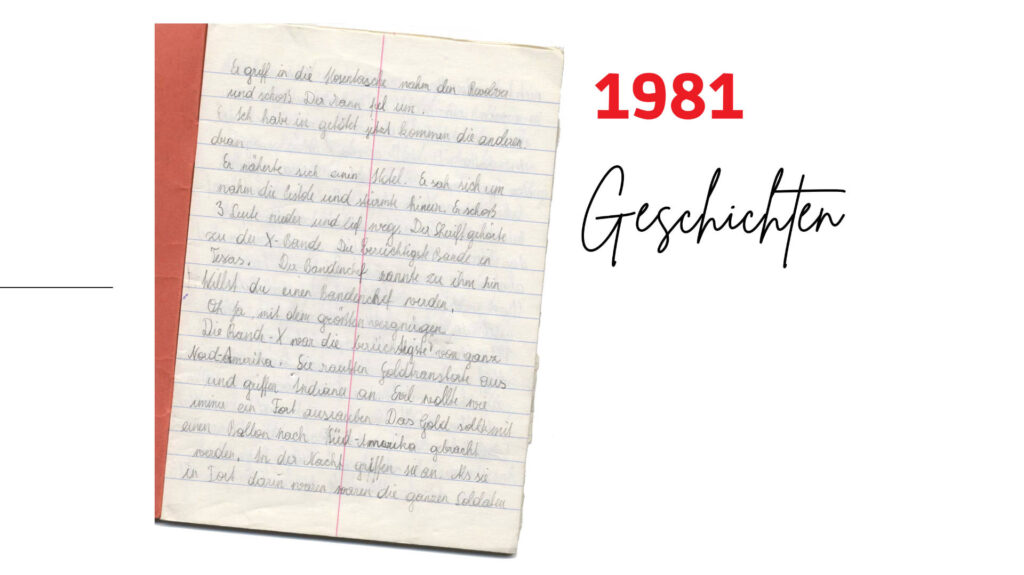 Er griff in die Hosentasche nahm den Revolver
und schoß. Der Mann fiel um.
Ich habe in getötet jetzt kommen die anderen
dran
Er näherte sich einin Hotel. Er sah sich um
nahm die Pistole und stürmte hinein. Er schoß
3 Leute nieder und lief weg. Der Shariff gehörte
zu der X-Bande. Die berüchtigste Bande in
Texas. Der Bandenchef rannte zu ihm hin
Willst du einen Bandenchef werden,
Oh ja, mit dem größten vergnügen
Die X war die berüchtigste von ganz
Nord-Amerika. Sie raubten Goldtransporte aus
und griffen Indianer an. wollte wie
immer ein Fort ausrauben. Das Gold sollte mit
einen Ballon nach Süd-Amerika gebracht
werden. In der Nacht griffen sie an. Als sie
in Fort darin waren waren die ganzen Soldaten
1981
Geschichten